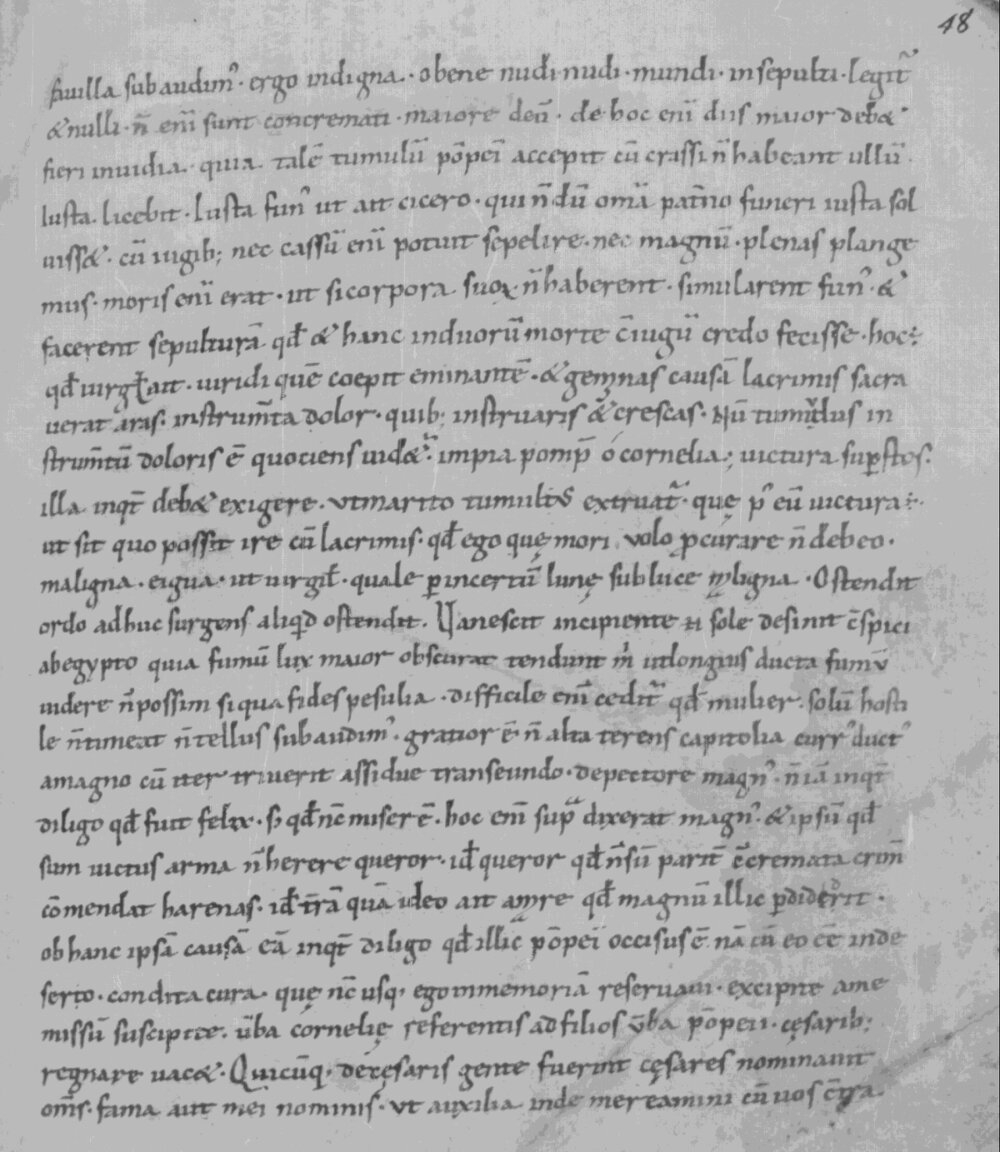 48
fauilla subaudimꝰ · ergo indigna · obene nudi nudi · mundi · insepulti · legit᷑
&nulli · n̄ eni̅ sunt concremati · maiore deu̅ · de hoc eni̅ diis maior deb&
fieri inuidia · quia tale̅ tumulu̅ po̅pei accepit cu̅ crassi n̄ habeant ullu̅ ·
Iusta licebit · Iusta funꝰ ut ait cicero · qui n̄du̅ oma̅ pat̅no funeri iusta sol
uiss& · cu̅ iugib; nec cassu̅ eni̅ potuit sepelire · nec magnu̅ · plenas plange
mus · moris eni̅ erat · ut si corpora suoꝝ n̄ haberent · simularent funꝰ · &
facerent sepultura̅ qd̅ & hanc induoru̅ morte c̅iugu̅ credo fecisse · hoc÷
qd̅ uirgł ait · uiridi que̅ coepit eminante̅ · & geminas causa̅ lacrimis sacra
uerat aras · instrum̅ta dolor · quib; instruaris & crescas · Nu̅ tumulus in
strum̅tu̅ doloris e̅ quociens uid&᷑ · impia pomp̅ o cornelia; uictura suꝑstos ·
illa inqt̅ deb& exigere · ut marito tumulus extruat᷑ · quę p̅ eu̅ uictura÷ ·
ut sit quo possit ire cu̅ lacrimis · qd̅ ego quę mori uolo ꝓcurare n̄ debeo ·
maligna · eigua · ut uirgił · quale ꝑ incertu̅ lunę sub luce maligna · Ostendit
ordo adhuc surgens aliqd̅ ostendit · Vanescit incipiente N sole desinit c̅spici
abegypto quia fumu̅ lux maior obscurat tendunt m̅ utlongius ducta fumu̅
uidere n̄ possim si qua fides pesulia · difficile eni̅ cedit᷑ qd̅ mulier · solu̅ hosti
le n̄ timeat n̄ tellus subaudimꝰ · gratior e̅ n̄ alta terens capitolia currꝰ ductꝰ
amagno cu̅ iter triuerit assidue transeundo · depectore magnꝰ · n̄ ia̅ inqt̅
diligo qd̅ fuit felix · s; qd̅ nc̅ miser e̅ · hoc eni̅ sup᷑ dixerat magnꝰ · & ipsu̅ qd̅
sum uictus arma n̄ herere queror · id̅ queror qd̅ n̄ su̅ parit̅ c̅cremata crim̅
co̅mendat harenas · id̅ t̅ra̅ qua̅ ideo ait amare qd̅ magnu̅ illic ꝑdiderit ·
ob hanc ipsa̅ causa̅ ea̅ inqt̅ diligo qd̅ illic po̅pei occisus e̅ na̅ cu̅ eo ce̅ inde
serto · condita cura · quę nc̅ usq; ego inmemoria̅ reseruaui · excipite ame
missu̅ suscipite · u̅ba cornelię referentis ad filios u̅ba po̅peii · cęsarib;
regnare uac& · Quicu̅q; decęsaris gente fuerint cęsares nominauit
om̅s · fama aut mei nominis · ut auxilia inde mereamini cu̅ uos c̅tra